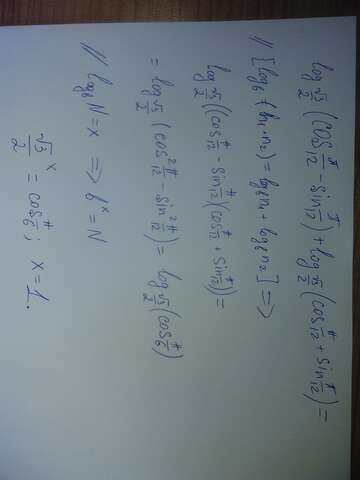 log_{√3/2} (cos π/12 - sin π/12) + log_{√3/2} (cos π/12 + sin π/12) =
// [log_b (n₁·n₂) = log_b n₁ + log_b n₂] =>
log_{√3/2} ((cos π/12 - sin π/12)(cos π/12 + sin π/12)) =
= log_{√3/2} (cos² π/12 - sin² π/12) = log_{√3/2} (cos π/6)
// log_b N = x => b^x = N
√3/2^x = cos π/6; x = 1.